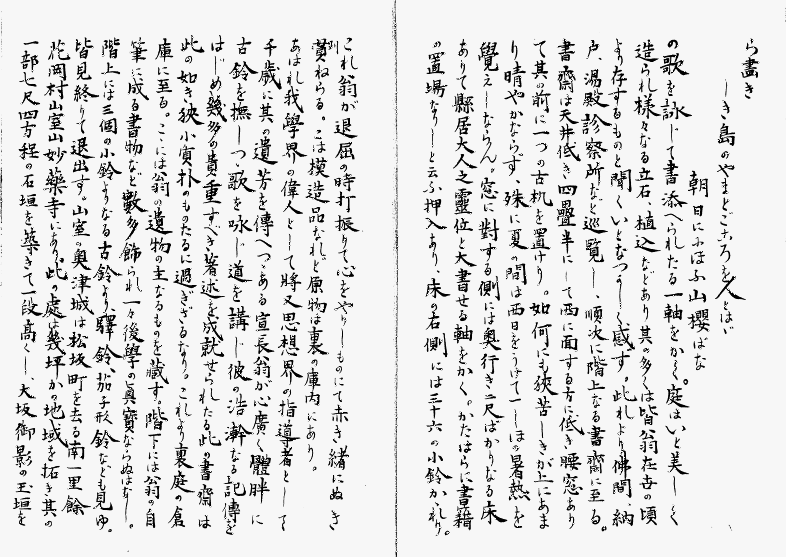 ら畫き
しき島のやまとごころを人とはゞ
朝日ににほふ山櫻ばな
の歌を詠じて書添へられたる一軸をかく。庭はいと美しく
造られ様々なる立石、植込などあり其の多くは皆翁在世の頃
より存するものと聞くいとなつかしく感ず。此れより佛間、納
戸、湯殿、診察所など巡覧し、順次に階上なる書齋に至る。
書齋は天井低き四疊半にして西に面する方に低き腰窓あり
て其の前に一つの古机を置けり。如何にも狹苦しきが上にあま
り晴やかならず、殊に夏の間は西日をうけて一しほの暑熱を
覺えしならん。窓に對する側には奥行き二尺ばかりなる床
ありて縣居大人之靈位と大書せる軸をかく。かたはらに書籍
の置場なりしと云ふ押入あり、床の右側には三十六の小鈴かゝれり。
これ翁が退屈の時打振りて心をやりしものにて赤き緒にぬき
貫ねらる。こは模造品なれど原物は裏の庫内にあり。
あはれ我學界の偉人として將又思想界の指導者として
千歳に其の遺芳を傳へつゝある宣長翁が心廣く體胖に
古鈴を撫しつゝ歌を咏じ道を講じ彼の浩瀚なる記傳を
はじめ幾多の貴重すべき著述を成就せられたる此の書齋は
此の如き狹小質朴のものたるに過ぎざるなり。これより裏庭の倉
庫に至る。こゝには翁の遺物の主なるものを藏す。階下には翁の自
筆に成る書物など數多飾られ一々後學の眞寶ならぬはなし。
階上には三個の小鈴よりなる古鈴より、驛鈴、茄子形鈴なども見ゆ。
皆見終りて退出す。山室の奥津城は松坂町を去る南一里餘
花岡村山室山妙藥寺にあり。此の處は幾坪かの地域を拓き其の
一部七尺四方程の石垣を築きて一段高くし、大坂御影の玉垣を